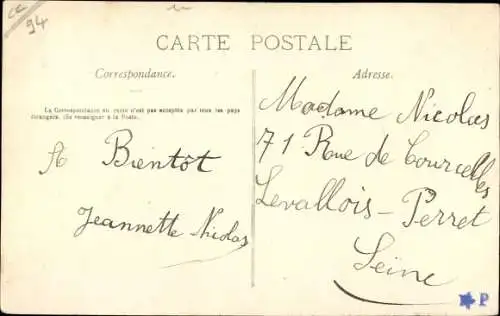 CC
94
CARTE POSTALE
Correspondance.
La Correspondance au recto n'est pas acceptée par tous les pays
étrangers. (Se renseigner à la Poste).
A Bientôt
Jeannette Nicolas
Adresse.
Madame Nicolas
71 Rue de Courcelles
Levallois-Perret
Seine
P